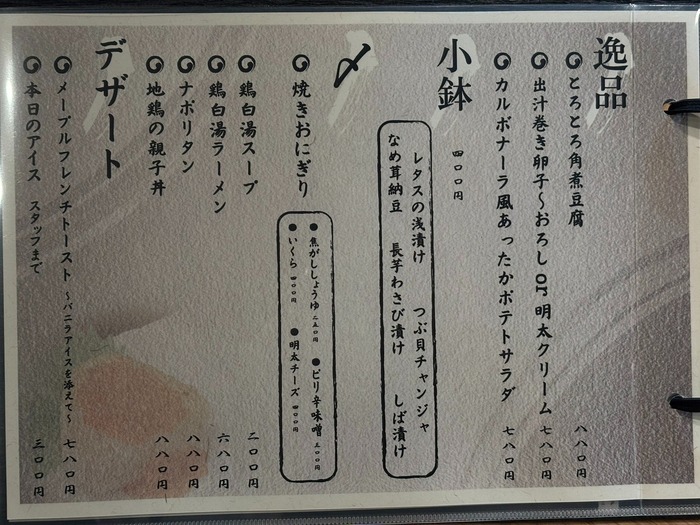 逸品
とろとろ角煮豆腐 八八〇円
出汁巻き卵子～おろしor明太クリーム 七八〇円
カルボナーラ風あったかポテトサラダ 七八〇円
小鉢 四〇〇円
レタスの浅漬け つぶ貝チャンジャ
なめ茸納豆 長芋わさび漬け しば漬け
〆
焼きおにぎり
焦がししょうゆ 二五〇円 ピリ辛味噌 三〇〇円
いくら 四〇〇円 明太チーズ 四〇〇円
鶏白湯スープ 二〇〇円
鶏白湯ラーメン 六八〇円
ナポリタン 八八〇円
地鶏の親子丼 八八〇円
デザート
メープルフレンチトースト ～バニラアイスを添えて～ 七八〇円
本日のアイス スタッフまで 三〇〇円